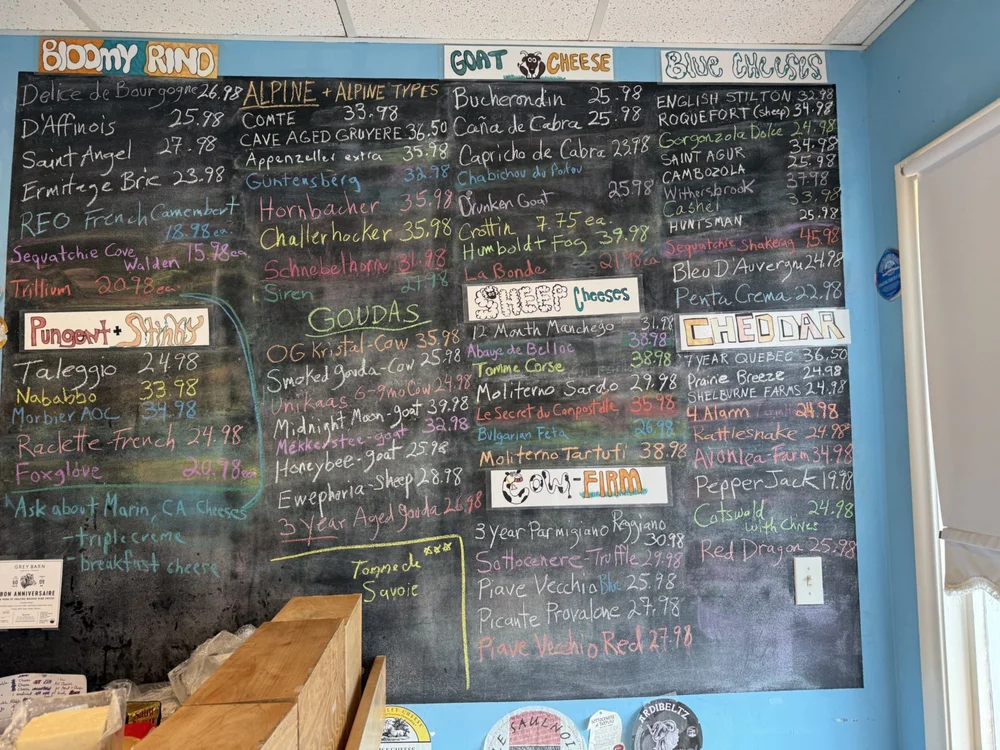 BLOOMY RIND
Delice de Bourgogne 26.98
D'Affinois 25.98
Saint Angel 27.98
Ermitage Brie 23.98
REO French Camembert
18.98 ea.
Sequatchie Cove
Walden 15.98 ea.
Trillium 20.98 ea.
Pungent + Stinky
Taleggio 24.98
Nababbo 33.98
Morbier AOC 34.98
Raclette-French 24.98
Foxglove 20.98 ea
*Ask about Marin, CA Cheeses
- triple creme
- breakfast cheese
GREY BARN
BON ANNIVERSAIRE
ALPINE + ALPINE TYPES
COMTE 33.98
CAVE AGED GRUYERE 36.50
Appenzeller extra 35.98
Guntensberg 32.98
Hornbacher 35.98
Challerhocker 35.98
Schnebelhorn 31.98
Siren 27.98
GOUDAS
OG Kristal-Cow 35.98
Smoked gouda-Cow 25.98
Uniekaas 6-9mo Cow 24.98
Midnight Moon-goat 39.98
Mekkerstee-goat 32.98
Honeybee-goat 25.98
Ewephoria-Sheep 28.98
3 Year Aged gouda 26.98
Tomme de
Savoie
GOAT CHEESE
Bucherondin 25.98
Caña de Cabra 25.98
Capricho de Cabra 23.98
Chabichou du Poitou
Drunken Goat 25.98
Crottin 7.75 ea.
Humboldt Fog 39.98
La Bonde 21.98 ea
SHEEP Cheeses
12 Month Manchego 31.98
Abaye de Belloc 38.98
Tomme Corse 38.98
Moliterno Sardo 29.98
Le Secret du Compostelle 35.98
Bulgarian Feta 26.98
Moliterno Tartufi 38.98
COW-FIRM
3 Year Parmigiano Reggiano
30.98
Sottocenere-Truffle 29.98
Piave Vecchio Blu 25.98
Picante Provalone 27.98
Piave Vecchio Red 27.98
BLUE CHEESES
ENGLISH STILTON 32.98
ROQUEFORT (sheep) 34.98
Gorgonzola Dolce 24.98
SAINT AGUR 34.98
CAMBOZOLA 25.98
Withersbrook 37.98
Cashel 33.98
HUNTSMAN 25.98
Sequatchie Shakerag 45.98
Bleu D'Auvergne 24.98
Penta Crema 22.98
CHEDDAR
7 YEAR QUEBEC 36.50
Prairie Breeze 24.98
SHELBURNE FARMS 24.98
4 Alarm 24.98
Rattlesnake 24.98
Avonlea Farm 34.98
Pepper Jack 19.98
Cotswald 24.98
with chives
Red Dragon 25.98
LE SAULNOI
ARDIBELTZ